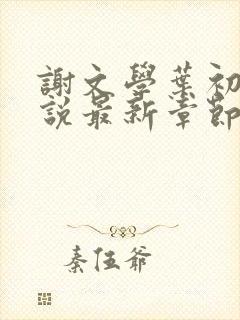 謝文學葉初
說最新章節
秦伍爺